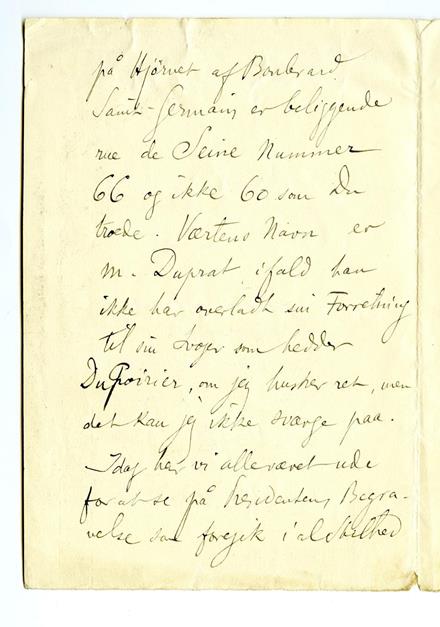 på Hjørnet af Boulevard
Saint-Germain, er beliggende
rue de Seine Nummer
66 og ikke 60 som Du
troede. Værtens Navn er
M. Duprat, ifald han
ikke har overladt sin Forretning
til sin Svoger som hedder
DuPoirier, om jeg husker ret, men
det kan jeg ikke sværge paa.
Idag har vi alle været ude
for at se på Presidentens Begra-
velse som foregik i al Stilhed